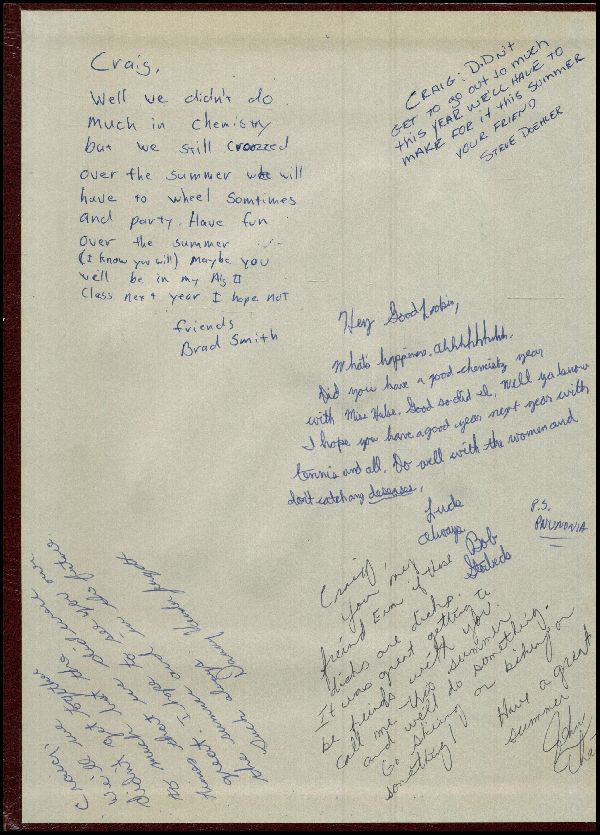 Craig,
Well we didn't do
Much in Chemistry
but we still croozed
over the summer we will
have to wheel Somtimes
and party. Have fun
over the summer
(I know you will) Maybe you
well be in my Alg II
Class next year I hope not
friends
Brad Smith
CRAIG: DIDN'T
GET TO go out so much
this YEAR WE'LL HAVE TO
MAKE FOR it this SUMMER
YOUR FRIEND
STEVE DOEHLER
Hey Good Lookin,
What's happinen. Ahhhhhhhhh.
Did you have a good chemistry year
with Miss Hulse. Good so did I. Well ya know
I hope you have a good year next year with
tennis and all. Do well with the women and
don't catch any deseases.
Luck
always
Bob
P.S.
PNUMONIA
Craig,
Your my
freind Even if these
dicks are dicks.
It was great getting to
be friends with you.
Call me this summer
and we'll do something.
Go skiing or biking or
something!
Have a great
summer
John
Craig,
Well we
didn't get together
to much but the
times that we did were
great. I hope to see you over
the summer and in the future
Luck always
Danny